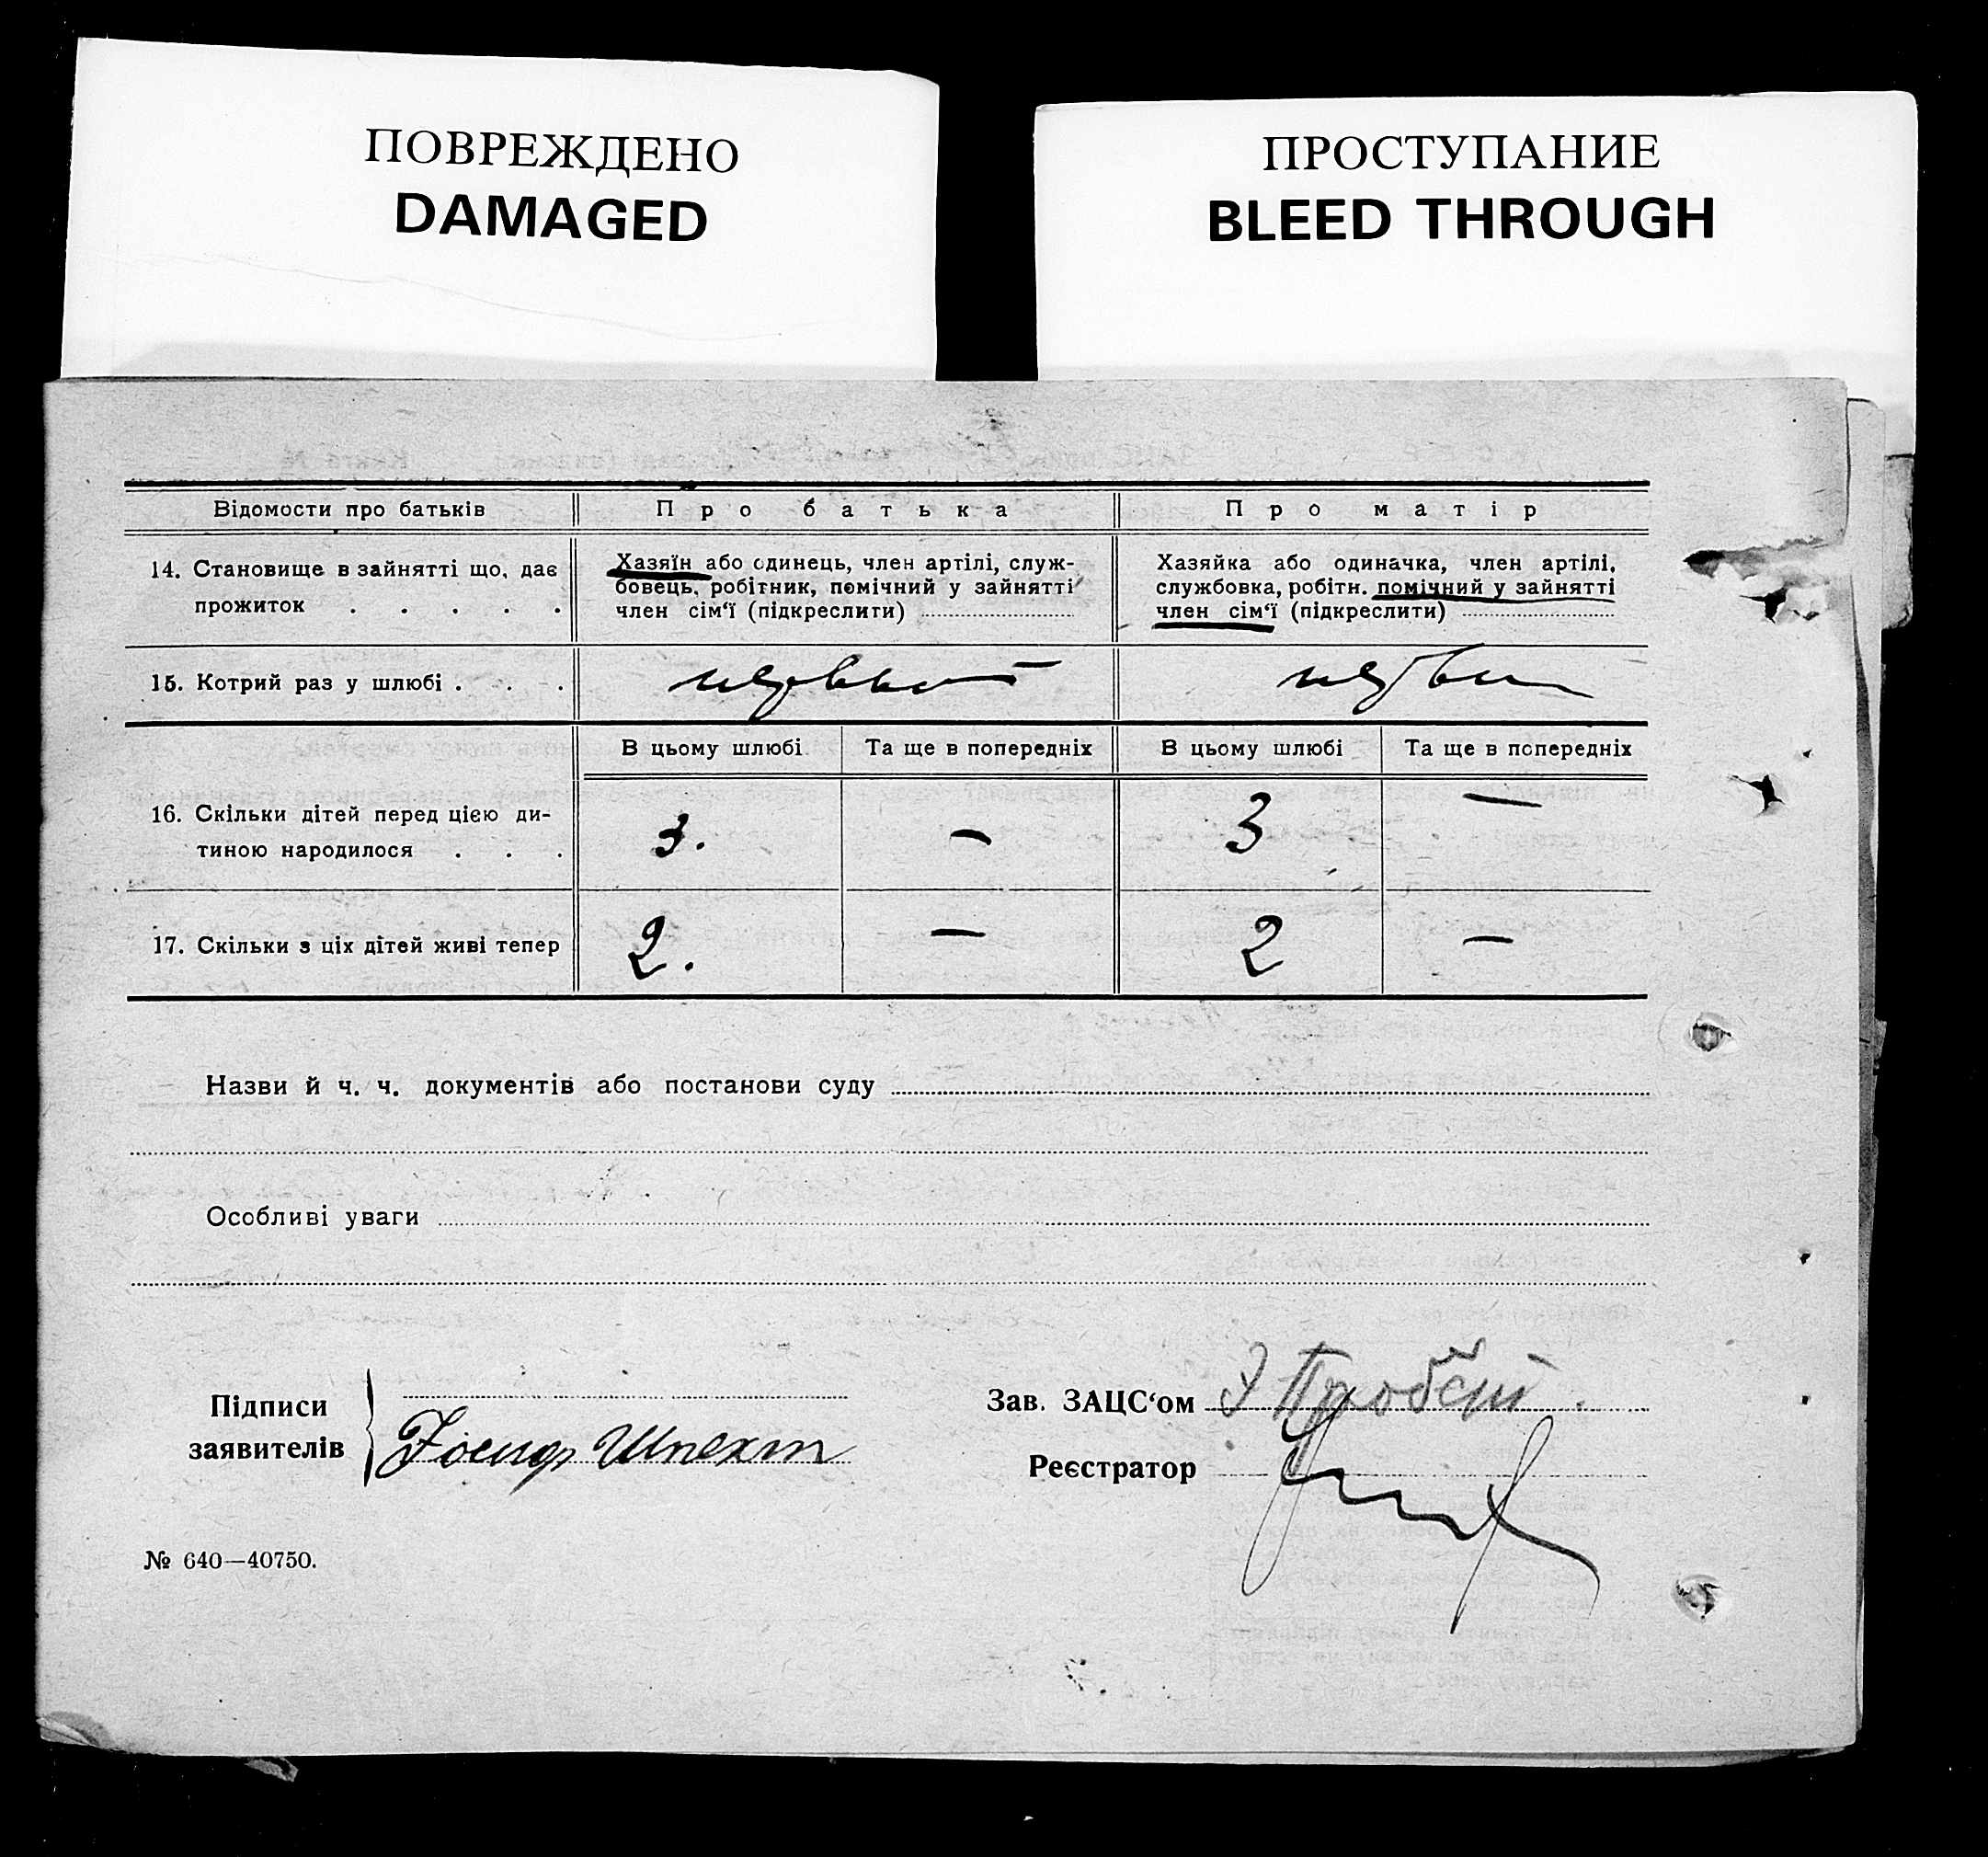 ПОВРЕЖДЕНО
DAMAGED
ПРОСТУПАНИЕ
BLEED THROUGH
Відомости про батьків Про батька Про матір
14. Становище в зайнятті що, дає
прожиток . . . . .
Хазяїн або одинець, член артілі, служ-
бовець, робітник, помічний у зайнятті
член сім'ї (підкреслити)
Хазяйка або одиначка, член артілі,
службовка, робітн. помічний у зайнятті
член сім'ї (підкреслити)
15. Котрий раз у шлюбі . . .
В цьому шлюбі Та ще в попередніх В цьому шлюбі Та ще в попередніх
16. Скільки дітей перед цією ди-
тиною народилося . . .
3. — 3 —
17. Скільки з ціх дітей живі тепер 2. — 2 —
Назви й ч. ч. документів або постанови суду
Особливі уваги
Підписи
заявителів
Іосиф Шпехт
Зав. ЗАЦС'ом
Реєстратор
№ 640—40750.